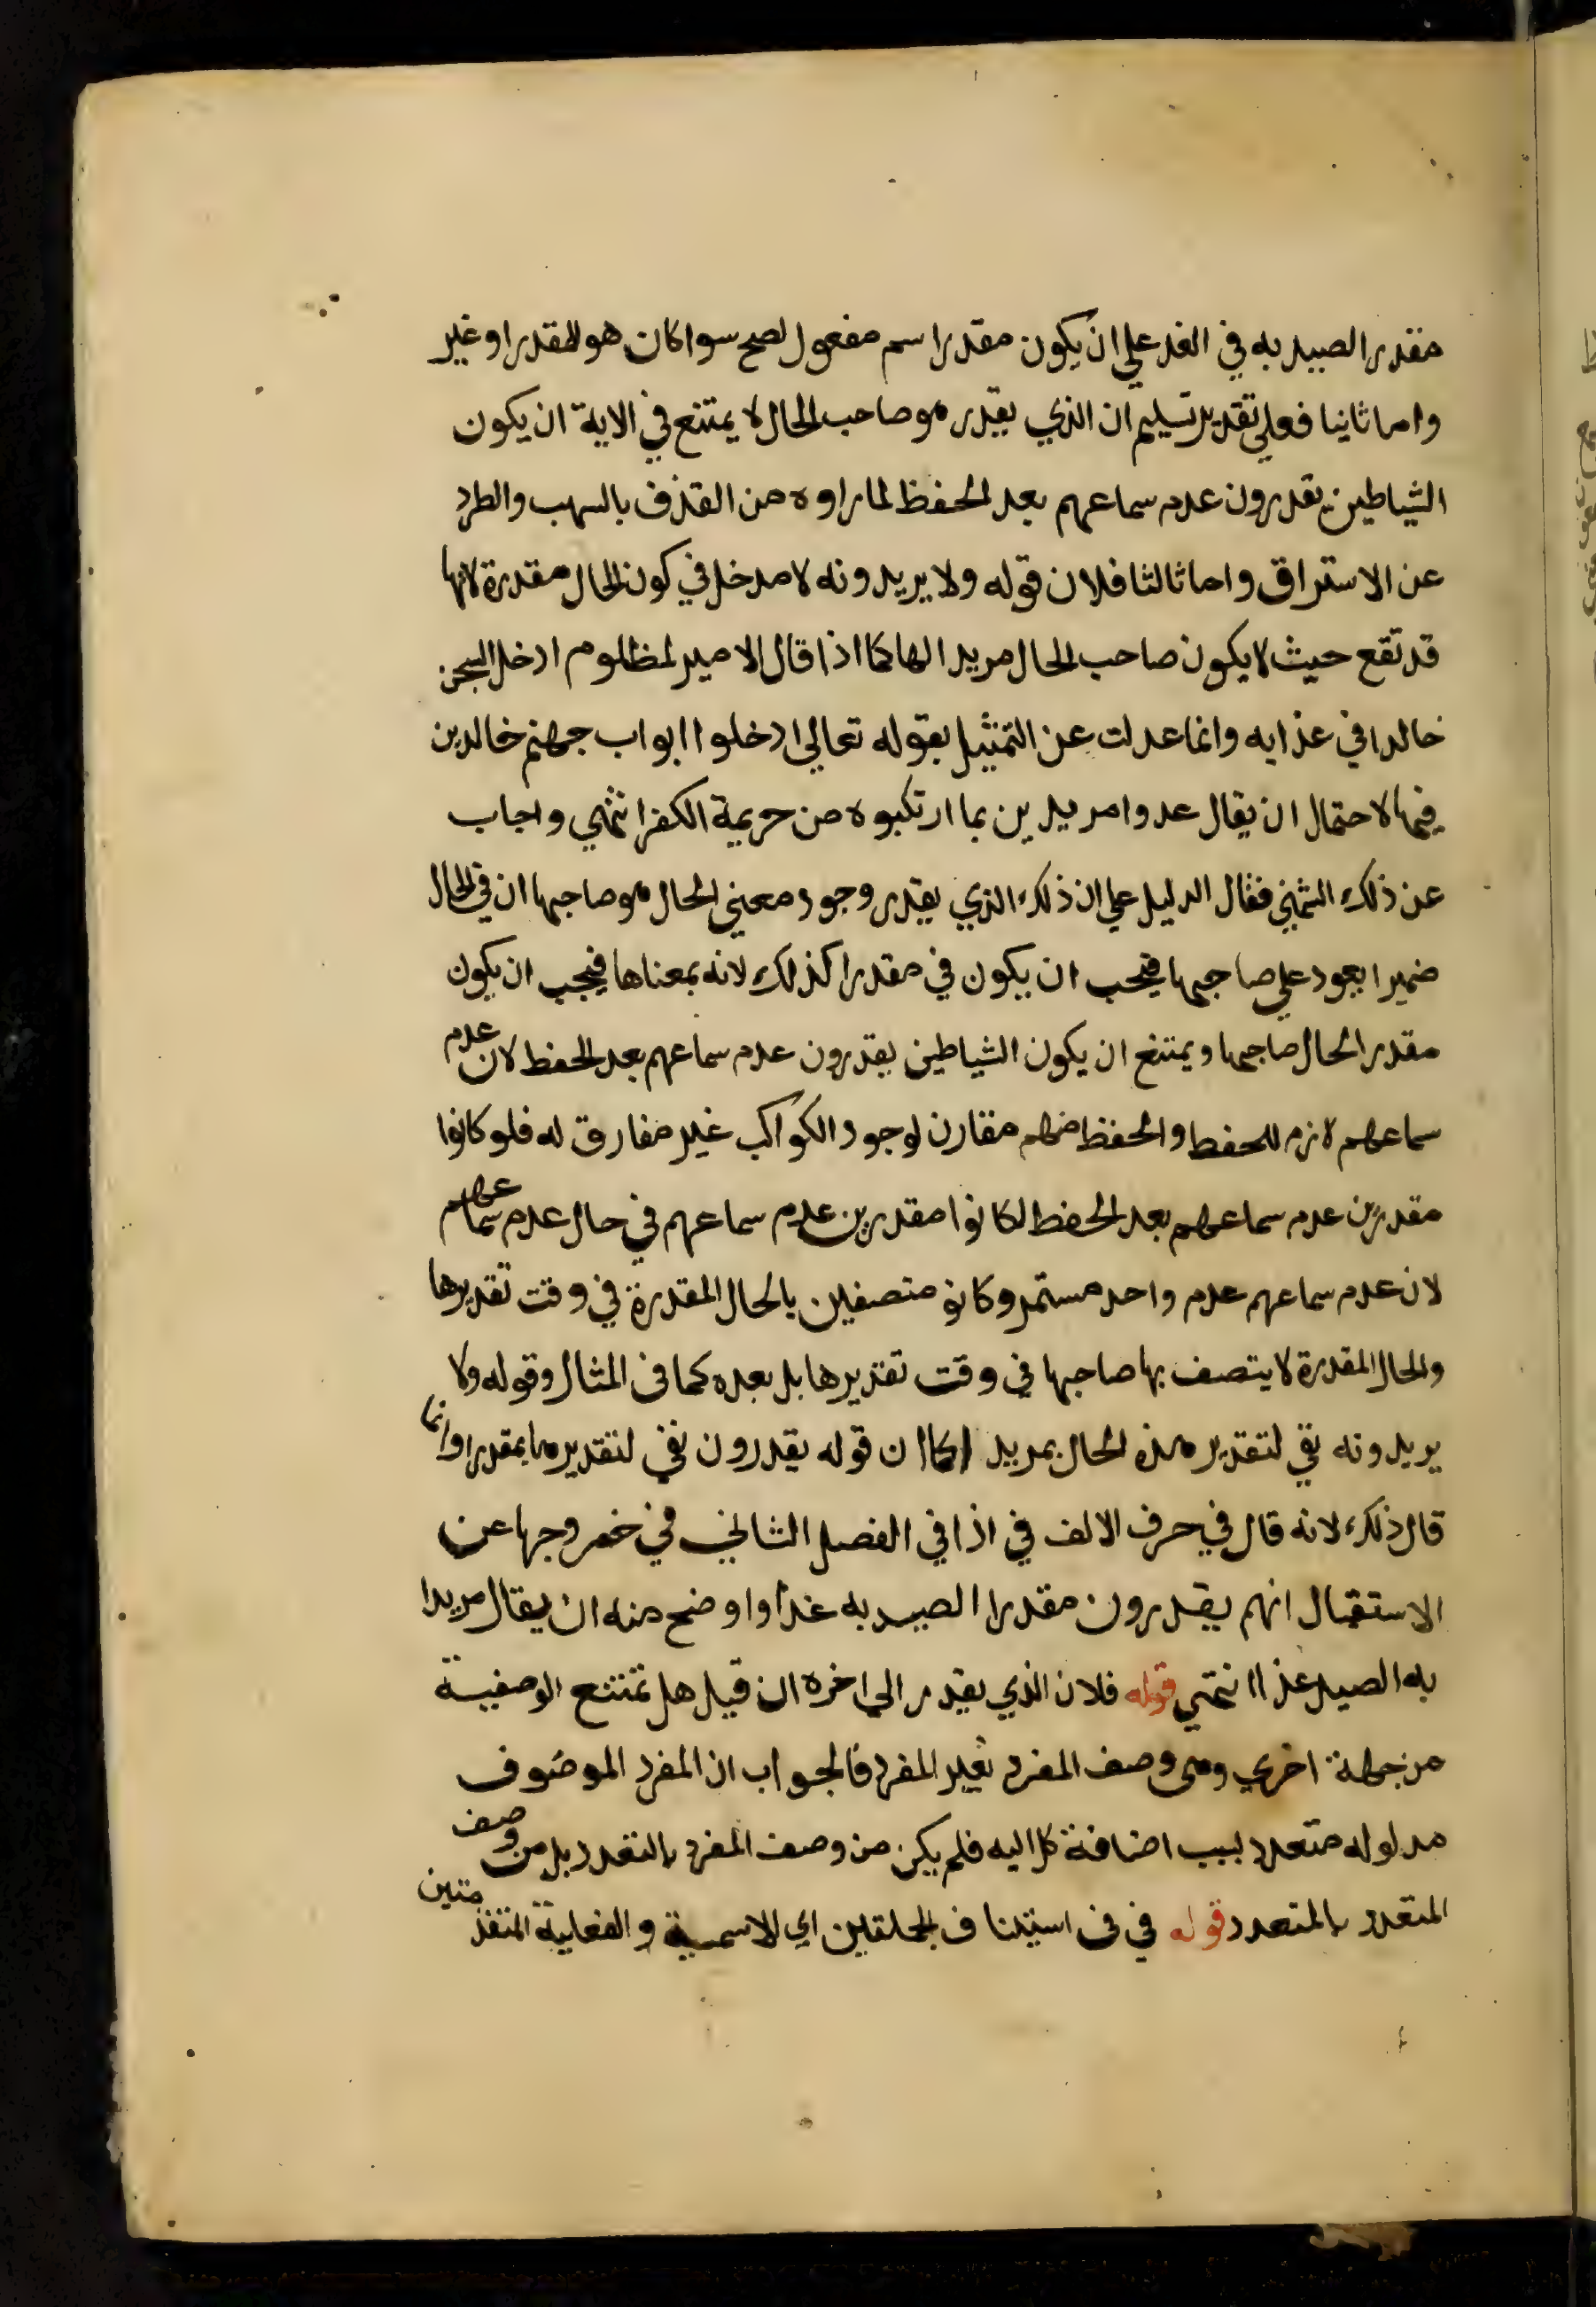 مقدر الصيد به في الغد علي ان يكون مقدرا سم مفعول لصح سوا كان هو المقدر او غير
واما ثانيا فعلي تقدير تسليم ان الذي يقدر هو صاحب الحال لا يمتنع في الاية ان يكون
الشياطين يقدرون عدم سماعهم بعد الحفظ لما راوه من القذف بالسهب والطرد
عن الاستراق واما ثالثا فلان قوله ولا يريدونه لا مدخل في كون الحال مقدرة لانها
قد تقع حيث لا يكون صاحب الحال مريدا لها كما اذا قال الامير لمظلوم ادخل السجن
خالدا في عذابه وانما عدلت عن التمثيل بقوله تعالي ادخلوا ابواب جهنم خالدين
فيها لاحتمال ان يقال عدوا مريدين بما ارتكبوه من جريمة الكفر انتهي واجاب
عن ذلك الشمني فقال الدليل علي ان ذلك الذي يقدر وجود معني الحال هو صاحبها ان في الحال
ضميرا يعود علي صاحبها فيجب ان يكون في مقدرا كذلك لانه بمعناها فيجب ان يكون
مقدر الحال صاحبها ويمتنع ان يكون الشياطين يقدرون عدم سماعهم بعد الحفظ لان عدم
سماعهم لازم للحفظ والحفظ منهم مقارن لوجود الكواكب غير مفارق له فلو كانوا
مقدرين عدم سماعهم بعد الحفظ لكانوا مقدرين عدم سماعهم في حال عدم سماعهم
لان عدم سماعهم عدم واحد مستمر وكانو متصفين بالحال المقدرة في وقت تقديرها
والحال المقدرة لا يتصف بها صاحبها في وقت تقديرها بل بعده كما في المثال وقوله ولا
يريدونه نفي لتقدير هذه الحال بمريد كما ان قوله يقدرون نفي لتقديرها بمقدرا وانما
قال ذلك لانه قال في حرف الالف في اذا في الفصل الثاني في خروجها عن
الاستقبال انهم يقدرون مقدرا الصيد به غدا واوضح منه ان يقال مريدا
به الصيد غدا انتهي قوله فلان الذي يقدر الي اخره ان قيل هل تمتنع الوصفية
من جهة اخري وهي وصف المفرد بغير المفرد فالجواب ان المفرد الموصوف
مدلوله متعدد لسبب اضافة كل اليه فلم يكن من وصف المفرد بالتعدد بل من وصف
المتعدد بالمتعدد قوله في في استيناف الجملتين اي الاسمية والفعلية المتقدمتين